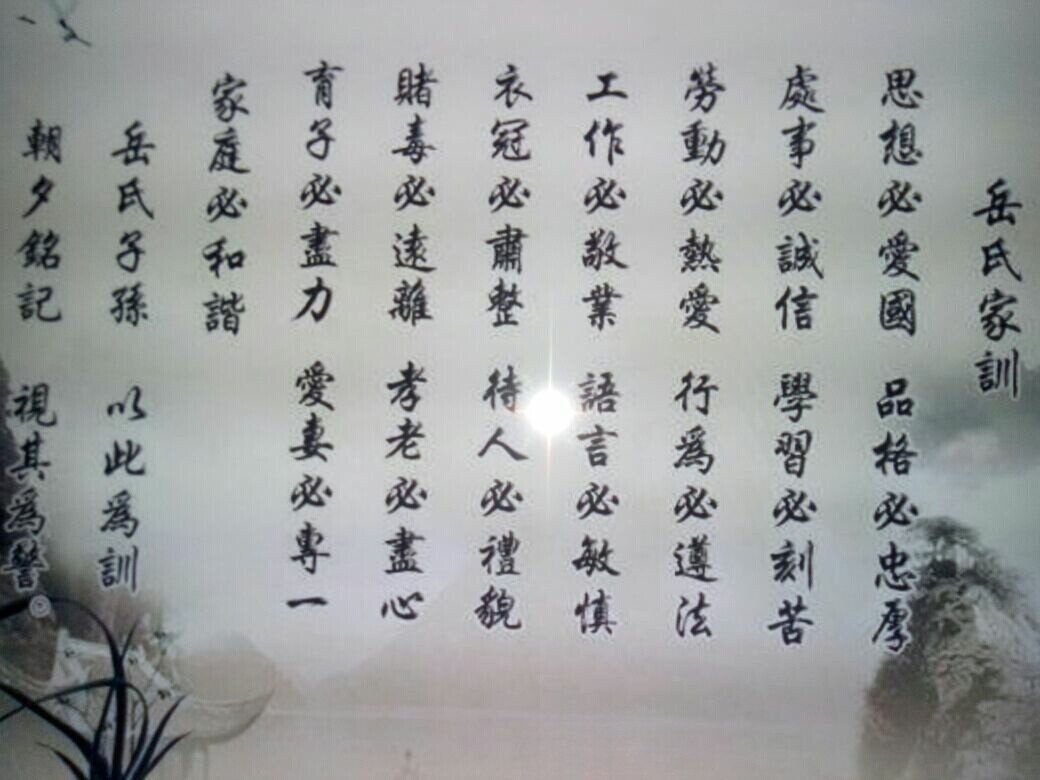 岳氏家訓
思想必愛國 品格必忠厚
處事必誠信 學習必刻苦
勞動必熱愛 行為必遵法
工作必敬業 語言必敏慎
衣冠必肅整 待人必禮貌
賭毒必遠離 孝老必盡心
育子必盡力 愛妻必專一
家庭必和諧
岳氏子孫 以此為訓
朝夕銘記 視其為警。